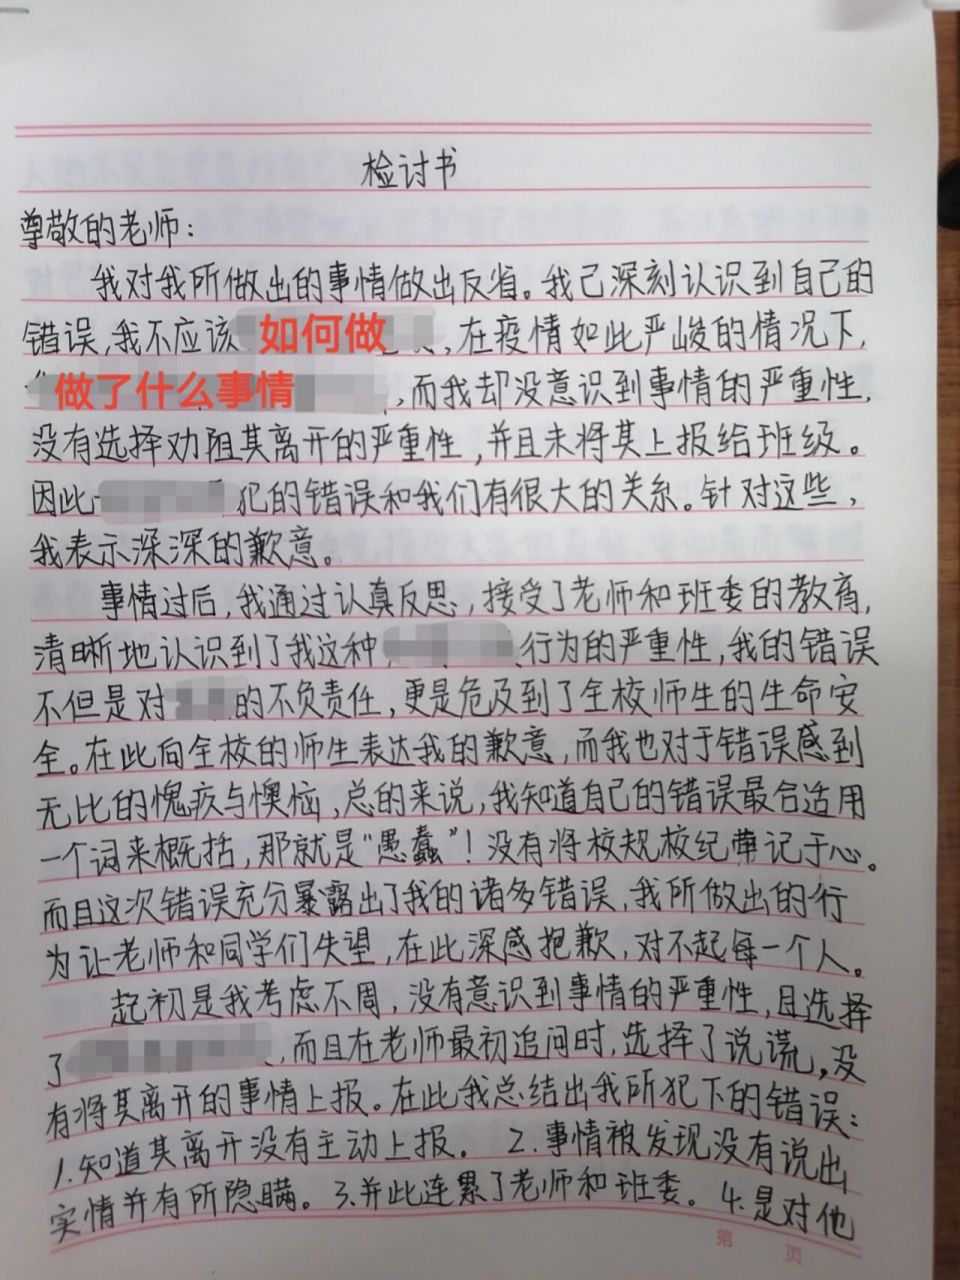 检讨书
尊敬的老师：
我对我所做出的事情做出反省。我已深刻认识到自己的
错误，我不应该如何做，在疫情如此严峻的情况下，
做了什么事情，而我却没意识到事情的严重性，
没有选择劝阻其离开的严重性，并且未将其上报给班级。
因此犯的错误和我们有很大的关系。针对这些，
我表示深深的歉意。
事情过后，我通过认真反思，接受了老师和班委的教育，
清晰地认识到了我这种行为的严重性，我的错误
不但是对的不负责任，更是危及到了全校师生的生命安
全。在此向全校的师生表达我的歉意，而我也对于错误感到
无比的愧疚与懊恼，总的来说，我知道自己的错误最合适用
一个词来概括，那就是“愚蠢”！没有将校规校纪牢记于心。
而且这次错误充分暴露出了我的诸多错误，我所做出的行
为让老师和同学们失望，在此深感抱歉，对不起每一个人。
起初是我考虑不周，没有意识到事情的严重性，且选择
了，而且在老师最初追问时，选择了说谎，没
有将其离开的事情上报。在此我总结出我所犯下的错误：
1.知道其离开没有主动上报。 2.事情被发现没有说出
实情并有所隐瞒。3.并此连累了老师和班委。4.是对他
第 页